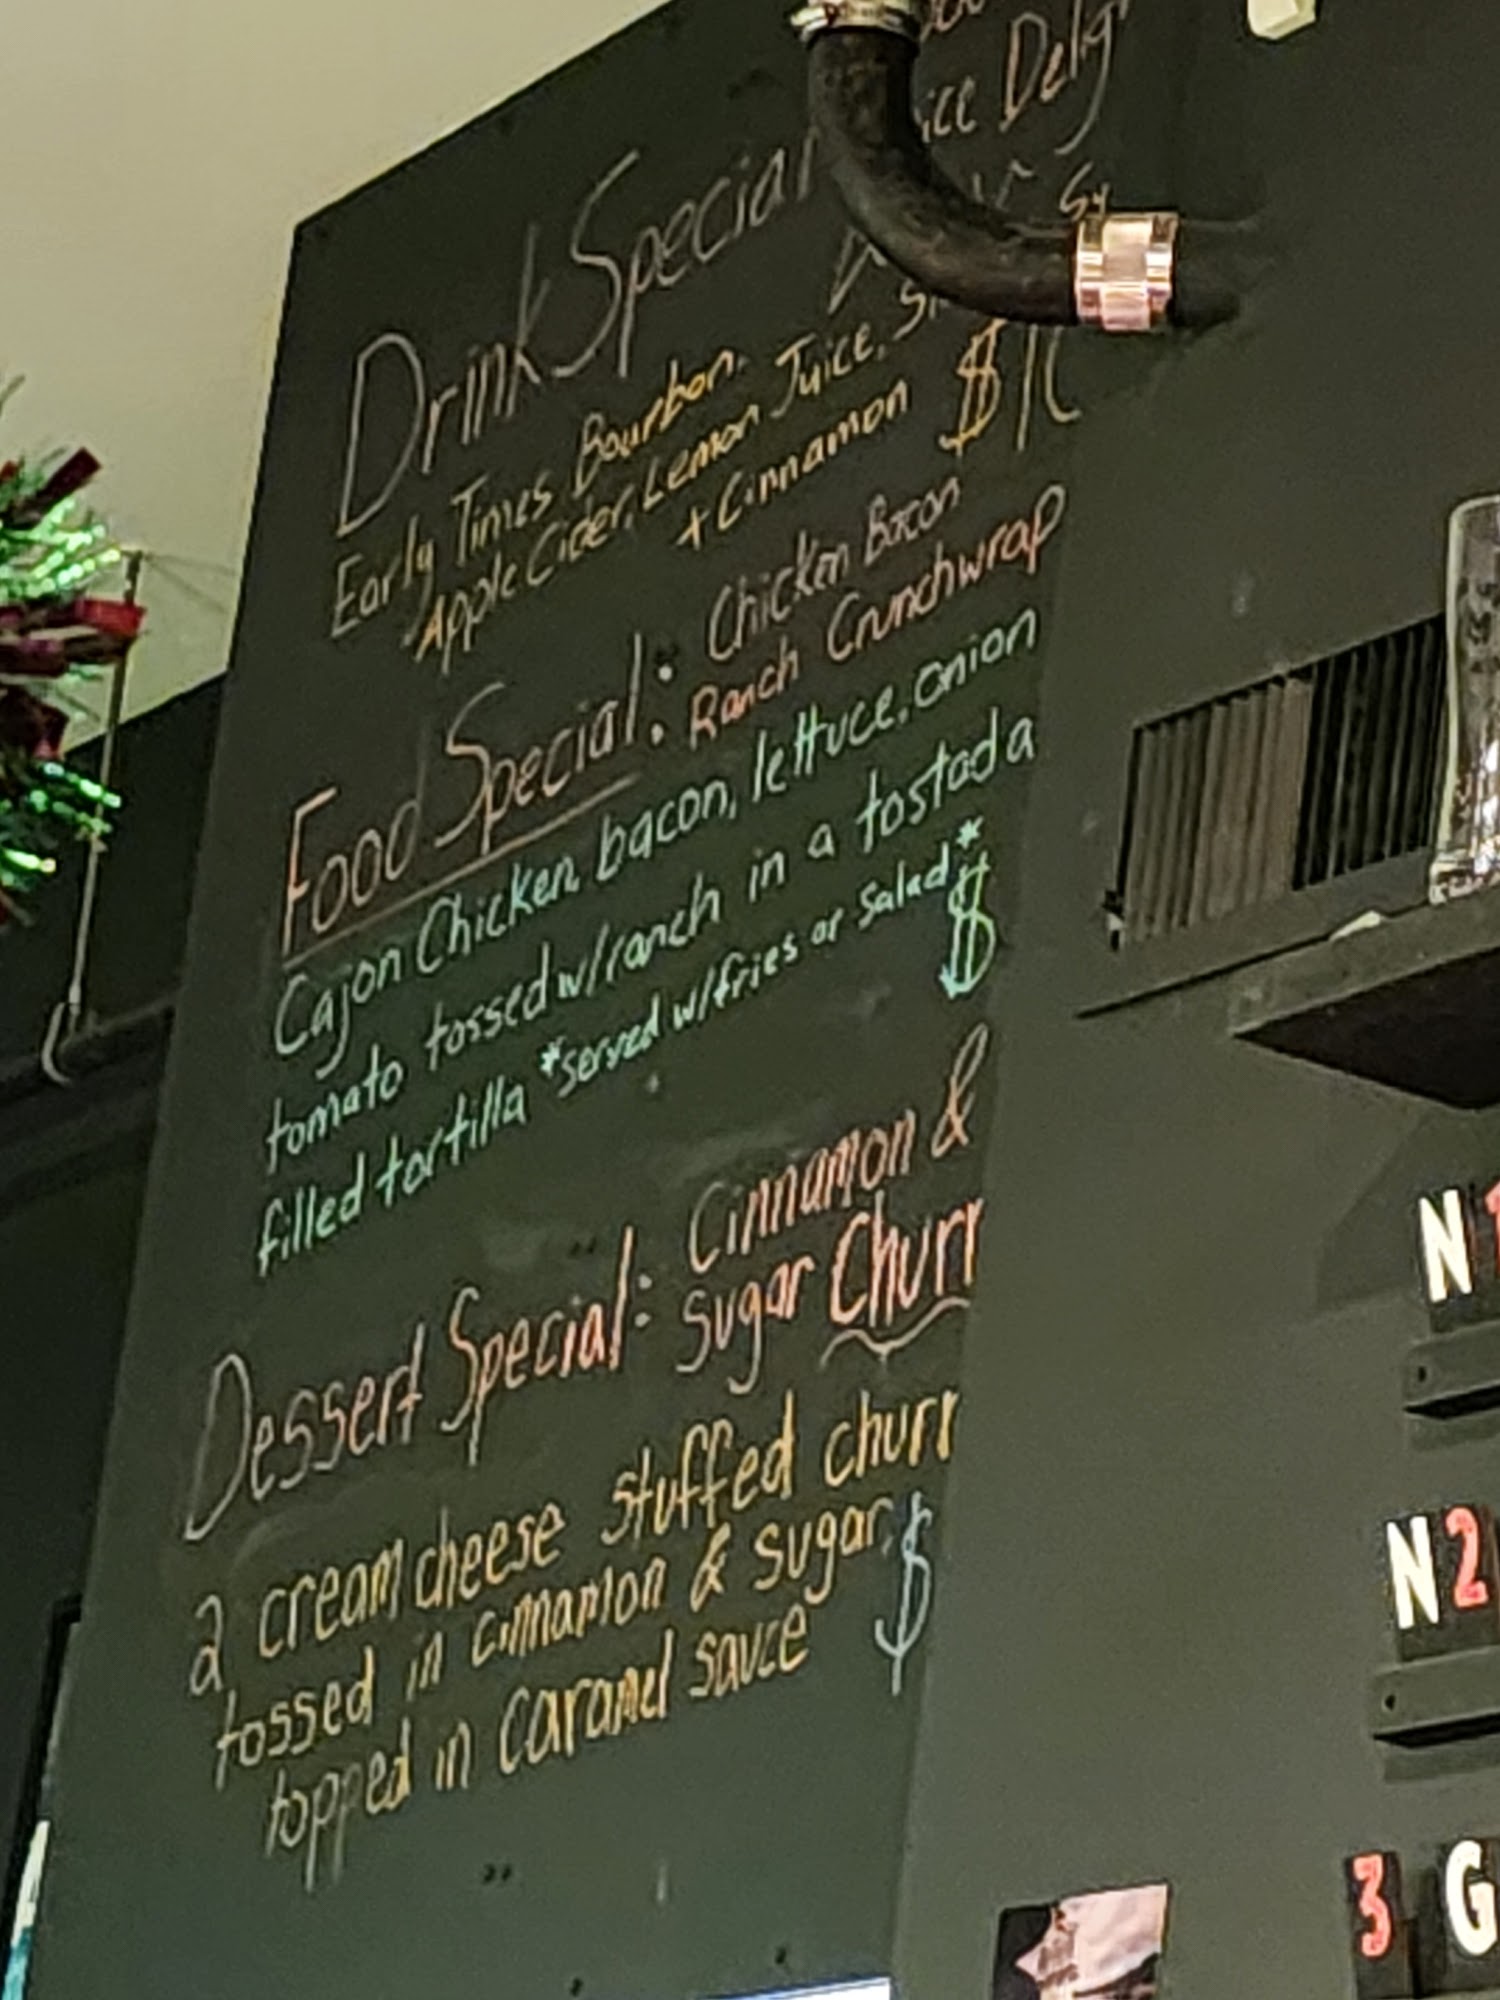 Drink Special
Delig
Early Times Bourbon,
Apple Cider, Lemon Juice,
+ Cinnamon $
Food Special: Chicken Bacon
Ranch Crunchwrap
Cajon Chicken, bacon, lettuce, onion
tomato tossed w/ranch in a tostada
filled tortilla *served w/fries or salad*
$
Dessert Special: Cinnamon &
Sugar Churr
a cream cheese stuffed churr
tossed in cinnamon & sugar,
topped in caramel sauce $
N
N2
3 G